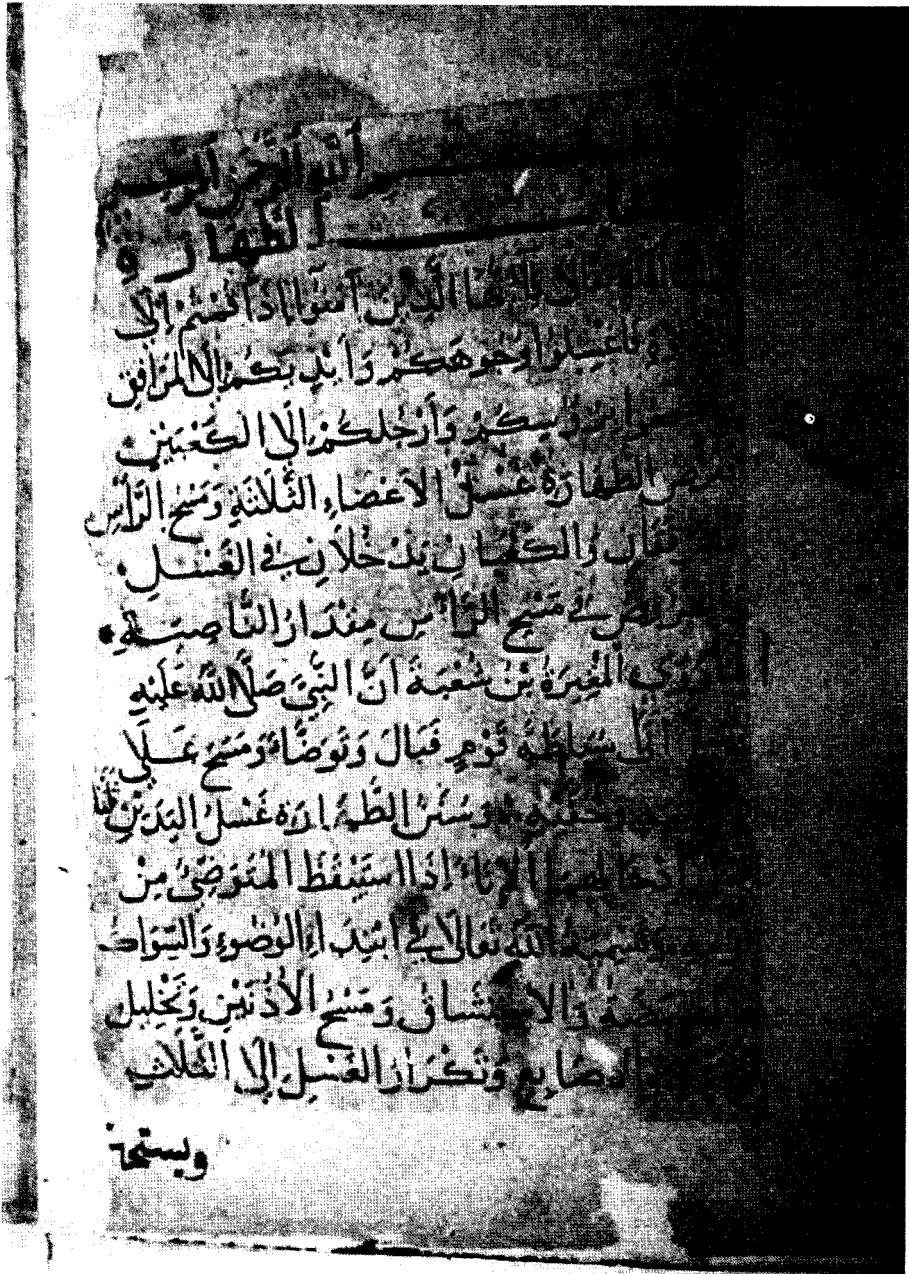 بسم اللَّهِ الرَّحْمَنِ الرَّحِيمِ
كتاب الطَّهَارَةِ
قال الله تعالى يَا أَيُّهَا الَّذِينَ آمَنُوا إِذَا قُمْتُمْ إِلَى
الصلاة فَاغْسِلُوا وُجُوهَكُمْ وَأَيْدِيَكُمْ إِلَى الْمَرَافِقِ
وامسحوا بِرُؤُسِكُمْ وَأَرْجُلَكُمْ إِلَى الْكَعْبَيْنِ
ففرض الطَّهَارَةِ غَسْلُ الْأَعْضَاءِ الثَّلَاثَةِ وَمَسْحُ الرَّأْسِ
والمرفقان وَالْكَعْبَانِ يَدْخُلَانِ فِي الْغَسْلِ
والمفروض فِي مَسْحِ الرَّأْسِ مِقْدَارُ النَّاصِيَةِ
لما رَوَى الْمُغِيرَةُ بْنُ شُعْبَةَ أَنَّ النَّبِيَّ صَلَّى اللَّهُ عَلَيْهِ
وسلم أَتَى سُبَاطَةَ قَوْمٍ فَبَالَ وَتَوَضَّأَ وَمَسَحَ عَلَى
ناصيته وَخُفَّيْهِ وَسُنَنُ الطَّهَارَةِ غَسْلُ الْيَدَيْنِ ثلثا
قبل إِدْخَالِهِمَا الْإِنَاءَ إِذَا اسْتَيْقَظَ الْمُتَوَضِّئُ مِنْ
نومه وَتَسْمِيَةُ اللَّهِ تَعَالَى فِي ابْتِدَاءِ الْوُضُوءِ وَالسِّوَاكُ
والمضمضة وَالِاسْتِنْشَاقُ وَمَسْحُ الْأُذُنَيْنِ وَتَخْلِيلُ
الْأَصَابِعِ وَتَكْرَارُ الْغَسْلِ إِلَى الثَّلَاثِ
ويستحب